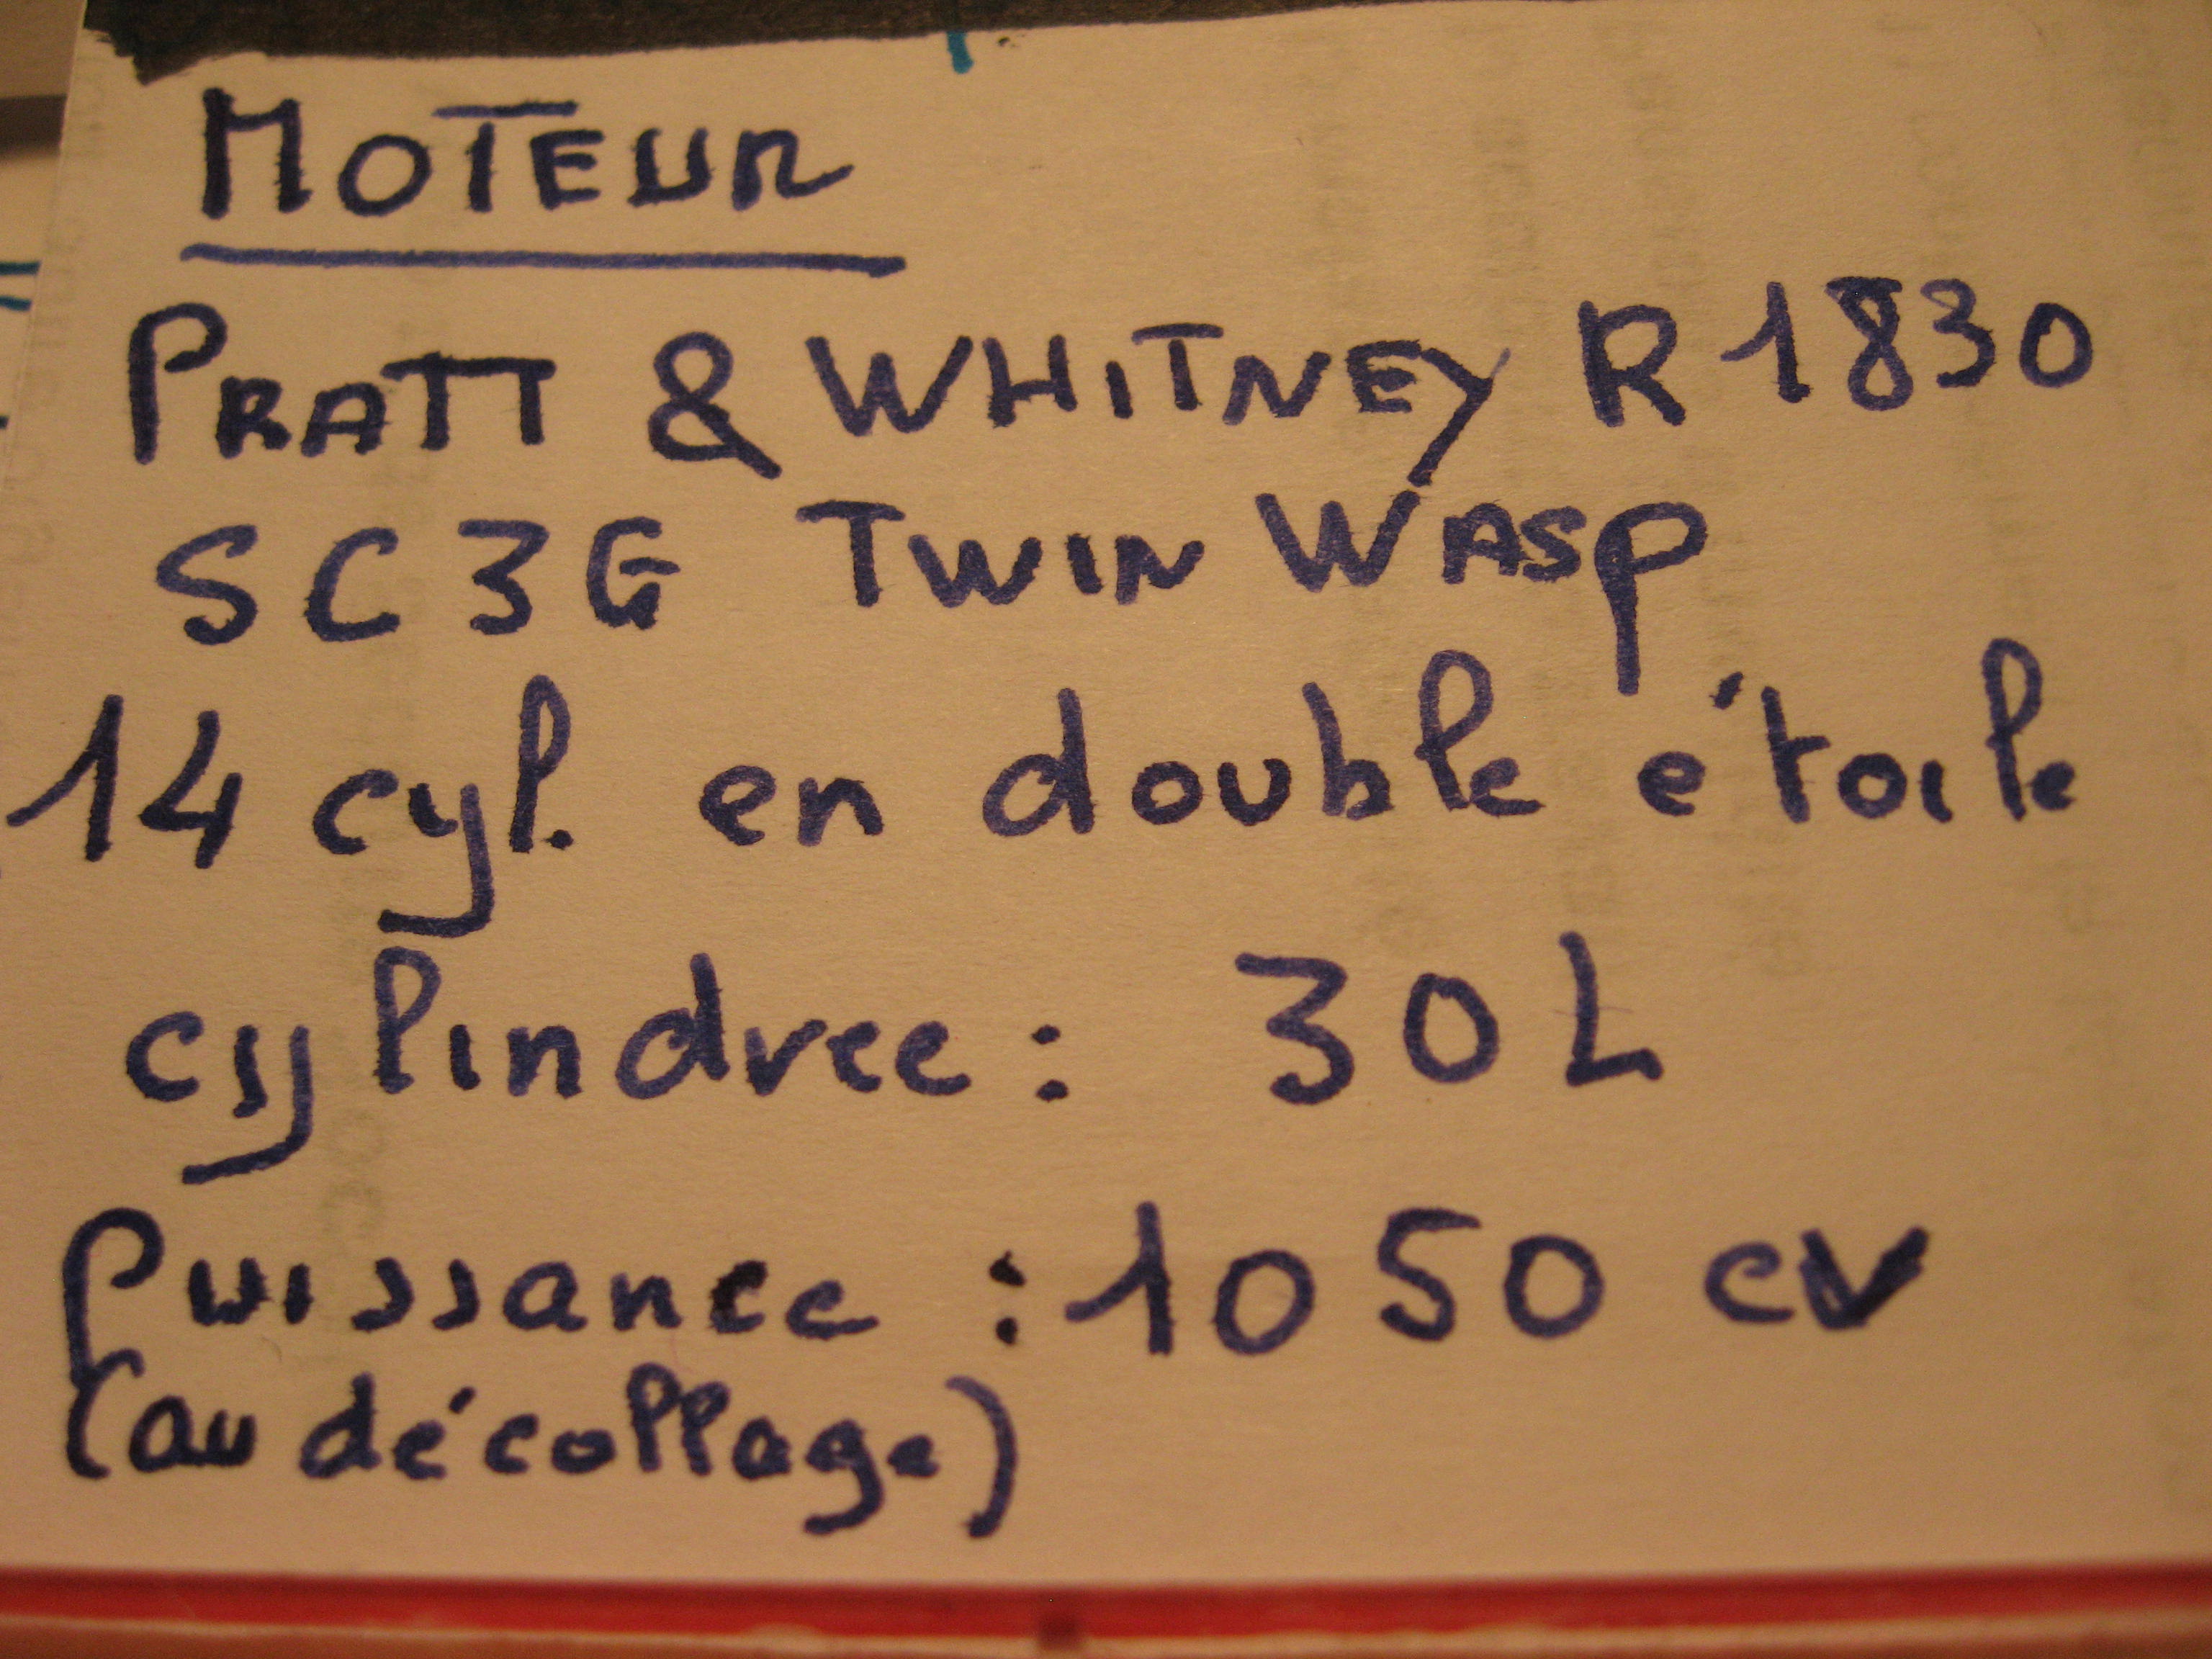 MOTEUR
PRATT & WHITNEY R 1830
SC3G TWIN WASP
14 cyl. en double étoile
cylindree : 30 L
Puissance : 1050 cv
(au décollage)